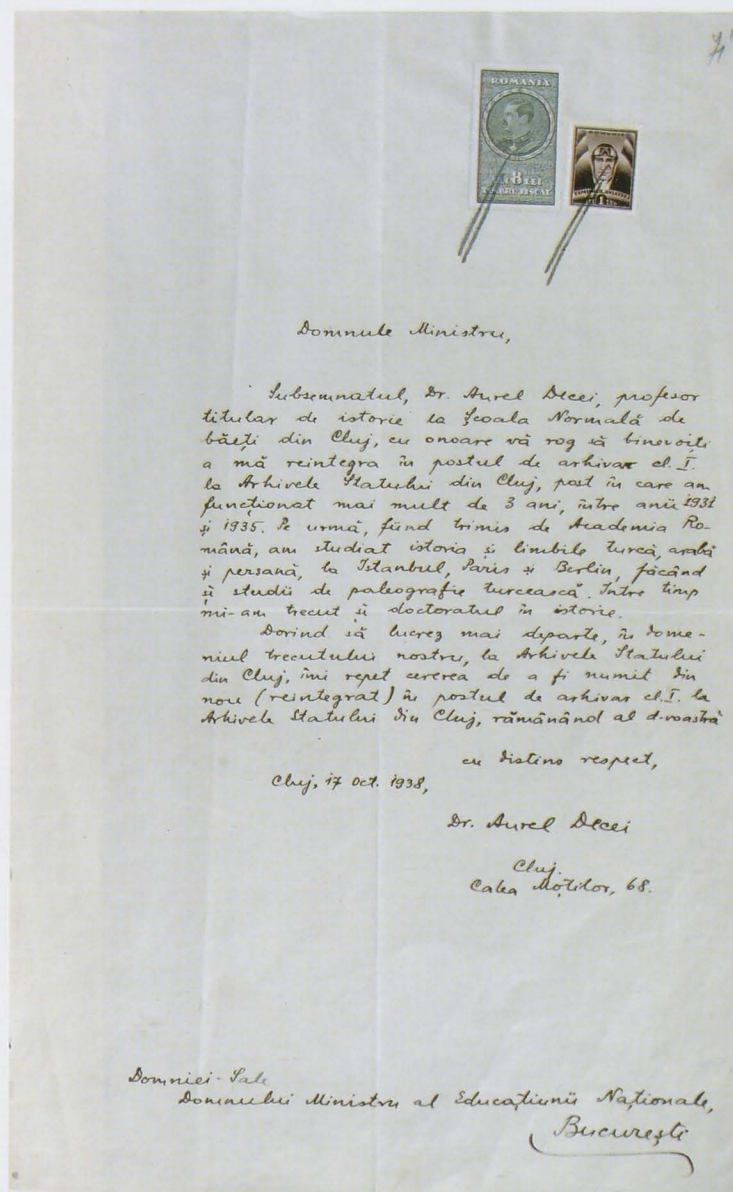 ROMANIA
8 LEI
TIMBRU FISCAL
Domnule Ministru,
Subsemnatul, Dr. Aurel Decei, profesor
titular de istorie la Școala Normală de
băeți din Cluj, cu onoare vă rog să binevoiți
a mă reintegra în postul de arhivar cl. I.
la Arhivele Statului din Cluj, post în care am
funcționat mai mult de 3 ani, între anii 1931
și 1935. Pe urmă, fiind trimis de Academia Ro-
mână, am studiat istoria și limbile turcă, arabă
și persană, la Istanbul, Paris și Berlin, făcând
și studii de paleografie turcească. Între timp
mi-am trecut și doctoratul în istorie.
Dorind să lucrez mai departe, în dome-
niul trecutului nostru, la Arhivele Statului
din Cluj, îmi repet cererea de a fi numit din
nou (reintegrat) în postul de arhivar cl. I. la
Arhivele Statului din Cluj, rămânând al d-voastră
cu distins respect,
Cluj, 17 Oct. 1938,
Dr. Aurel Decei
Cluj.
Calea Moților, 68.
Domniei-Sale
Domnului Ministru al Educațiunii Naționale,
București